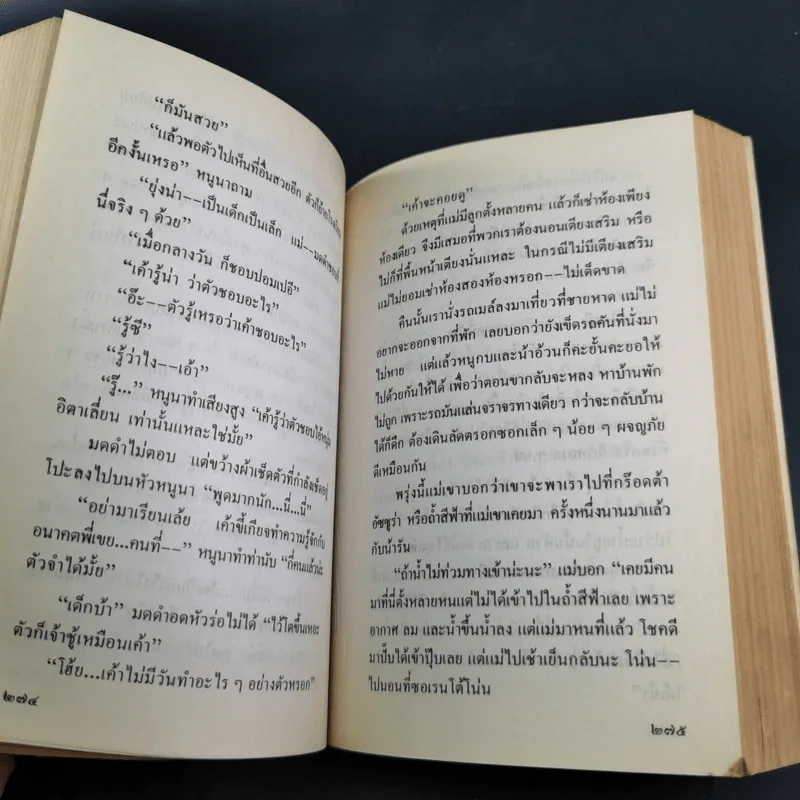 “ก็มันสวย”
“แล้วพอตัวไปเห็นที่อื่นสวยอีก ตัวก็
อีคงั้นเหรอ” หนูนาถาม
“ยุ่งน่า--เป็นเด็กเป็นเล็ก แม่--มดดำ
นี่จริง ๆ ด้วย”
“เมื่อกลางวัน ก็ชอบปอมเปอี”
“เค้ารู้น่า ว่าตัวชอบอะไร”
“อ๊ะ--ตัวรู้เหรอว่าเค้าชอบอะไร”
“รู้ซี”
“รู้ว่าไง--เอ้า”
“รู้...” หนูนาทำเสียงสูง “เค้ารู้ว่าตัวชอบไอ้หนุ่ม
อิตาเลี่ยน เท่านั้นแหละใช่มั้ย”
มดดำไม่ตอบ แต่ขว้างผ้าเช็ดตัวที่กำลังเช็ดอยู่
โปะลงไปบนหัวหนูนา “พูดมากนัก...นี่...นี่”
“อย่ามาเรียนเล้ย เค้าขี้เกียจทำความรู้จักกับ
อนาคตพี่เขย...คนที่--” หนูนาทำท่านับ “กี่คนแล้วน่ะ
ตัวจำได้มั้ย”
“เด็กบ้า” มดดำอดหัวร่อไม่ได้ “ไว้โตขึ้นเหอะ
ตัวก็เจ้าชู้เหมือนเค้า”
“โฮ้ย...เค้าไม่มีวันทำอะไร ๆ อย่างตัวหรอก”
๒๗๔
“เค้าจะคอยดู”
ด้วยเหตุที่แม่มีลูกตั้งหลายคน แล้วก็เช่าห้องเพียง
ห้องเดียว จึงมีเสมอที่พวกเราต้องนอนเตียงเสริม หรือ
ไม่ก็ที่พื้นหน้าเตียงนั่นแหละ ในกรณีไม่มีเตียงเสริม
แม่ไม่ยอมเช่าห้องสองห้องหรอก--ไม่เด็ดขาด
คืนนั้นเรานั่งรถเมล์ลงมาเที่ยวที่ชายหาด แม่ไม่
อยากจะออกจากที่พัก เลยบอกว่ายังเข็ดรถคันที่นั่งมา
ไม่หาย แต่แล้วหนูกบและน้าอ้วนก็คะยั้นคะยอให้
ไปด้วยกันให้ได้ เพื่อว่าตอนขากลับจะหลง หาบ้านพัก
ไม่ถูก เพราะรถมันแล่นจราจรทางเดียว กว่าจะกลับบ้าน
ได้ก็ดึก ต้องเดินลัดตรอกซอกเล็ก ๆ น้อย ๆ ผจญภัย
ดีเหมือนกัน
พรุ่งนี้แม่เขาบอกว่าเขาจะพาเราไปที่กร๊อดต้า
อัซซูร่า หรือถ้ำสีฟ้าที่แม่เขาเคยมา ครั้งหนึ่งนานมาแล้ว
กับน้ารัน
“ถ้าน้ำไม่ท่วมทางเข้าน่ะนะ” แม่บอก “เคยมีคน
มาที่นี่ตั้งหลายหนแต่ไม่ได้เข้าไปในถ้ำสีฟ้าเลย เพราะ
อากาศ ลม และน้ำขึ้นน้ำลง แต่แม่มาหนที่แล้ว โชคดี
มาปั๊บได้เข้าปุ๊บเลย แต่แม่ไปเช้าเย็นกลับนะ โน่น--
ไปนอนที่ซอเรนโต้โน่น
๒๗๕